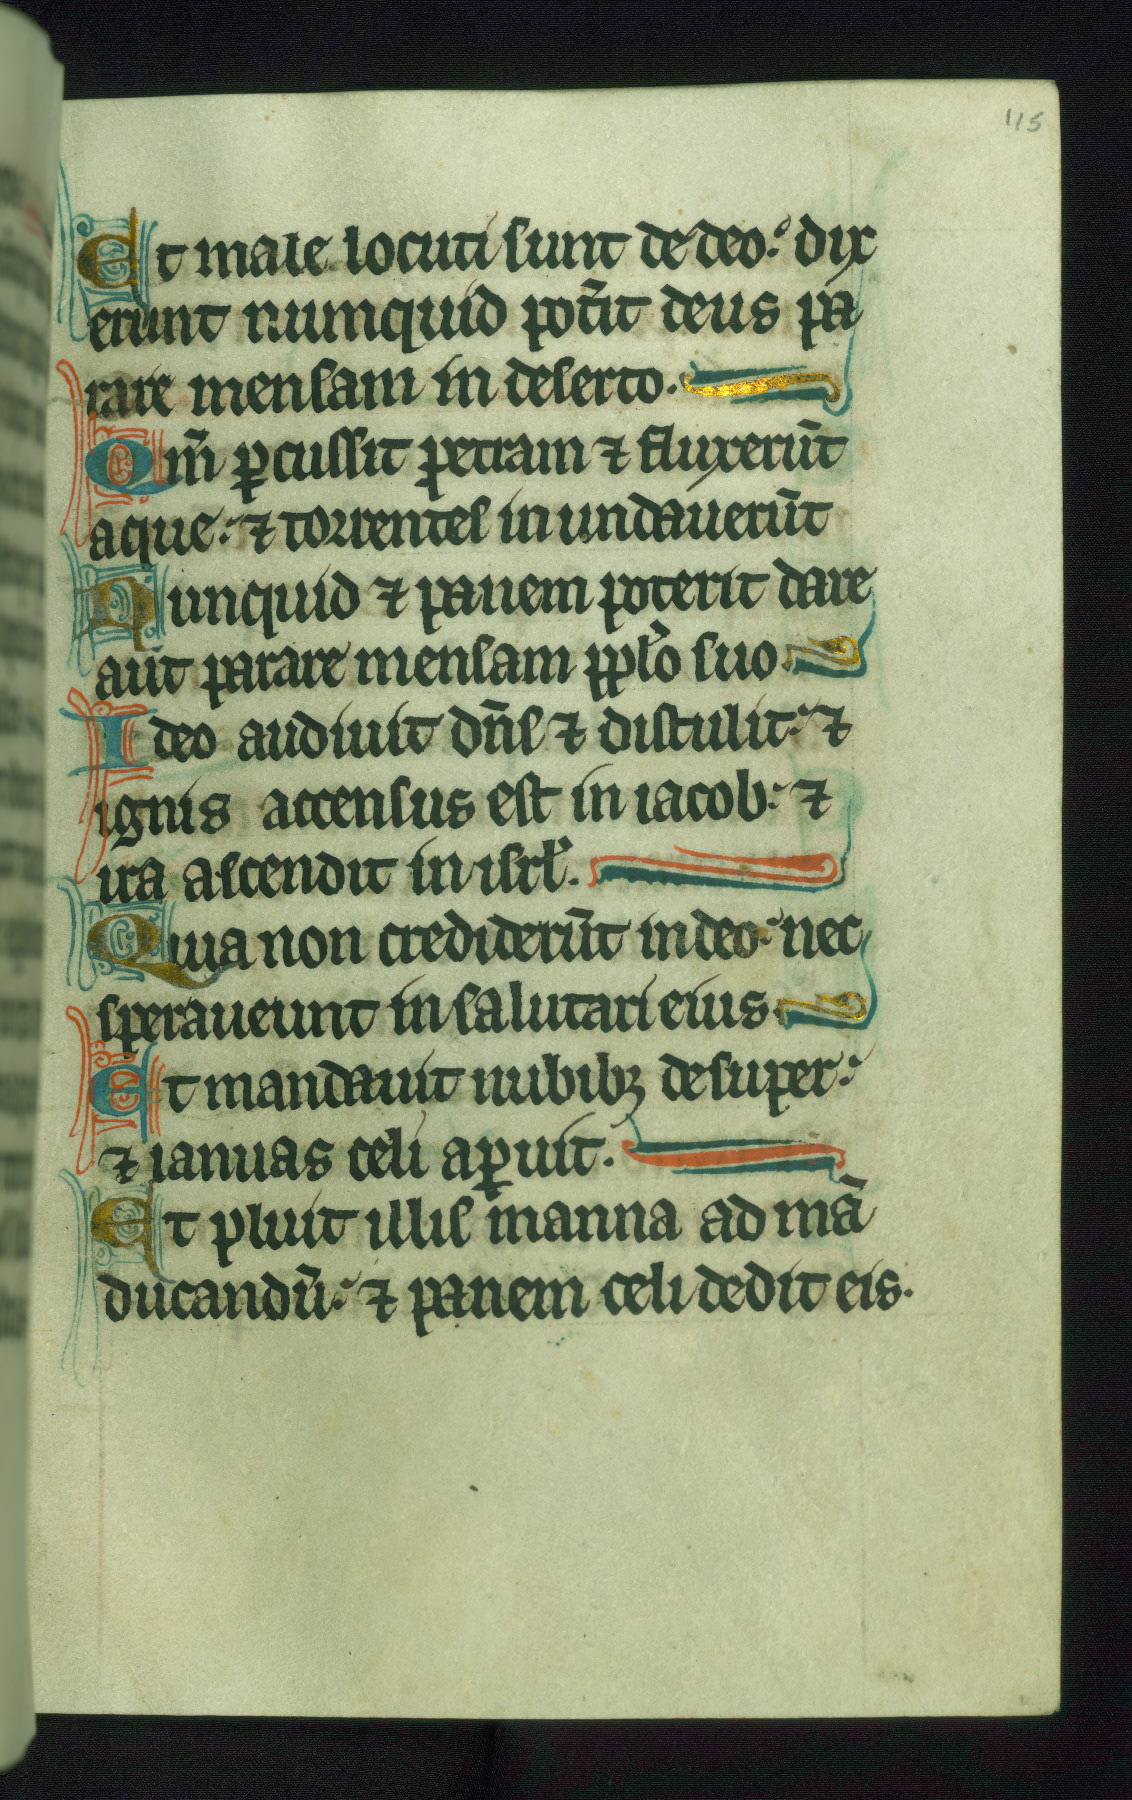 115
Et male locuti sunt de deo. dix
erunt numquid pot̃it deus pa
rare mensam in deserto.
Qm̃ ꝑcussit petram ⁊ fluxerũt
aque. ⁊ torrentes inundauerũt
Nunquid ⁊ panem poterit dare
aut̃ parare mensam pplo̓ suo
Ideo audiuit dñs ⁊ distulit. ⁊
ignis accensus est in iacob. ⁊
ira ascendit in isrl̃.
Quia non crediderũt in deo. nec
speraueunt in salutari eius
Et mandauit nubibꝫ desuper.
⁊ ianuas celi aꝑuit.
Et pluit illis manna ad mã
ducandũ. ⁊ panem celi dedit eis.